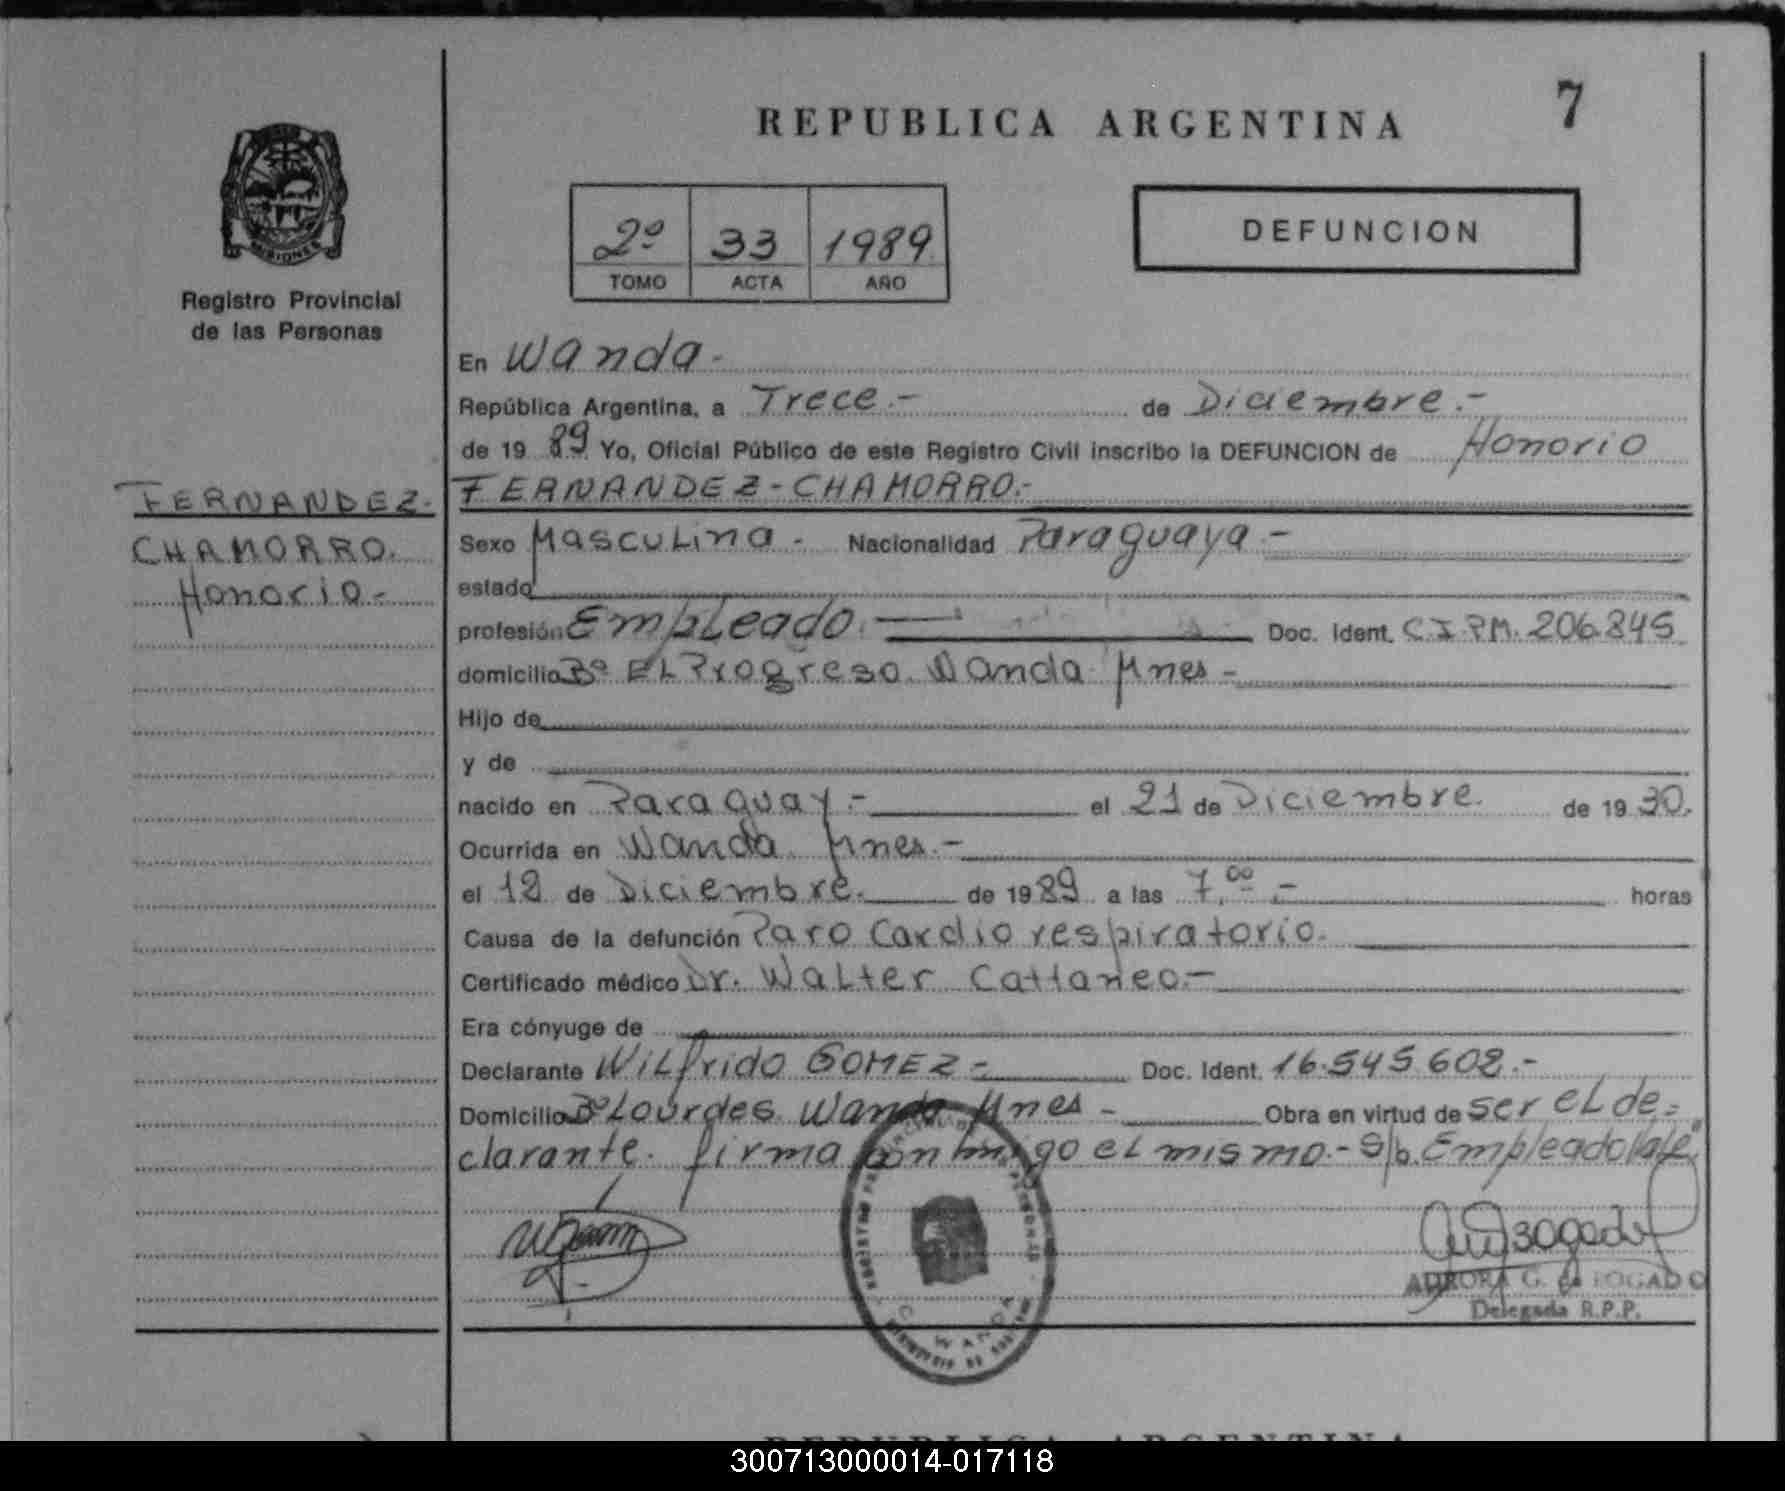 REPUBLICA ARGENTINA
7
MISIONES
Registro Provincial
de las Personas
2º 33 1989
TOMO ACTA AÑO
DEFUNCION
FERNANDEZ-
CHAMORRO.
Honorio-
En Wanda-
República Argentina, a Trece.- de Diciembre.-
de 19 89 Yo, Oficial Público de este Registro Civil inscribo la DEFUNCION de Honorio
FERNANDEZ-CHAMORRO.-
Sexo Masculina- Nacionalidad Paraguaya.-
estado
profesión Empleado.- Doc. Ident. C.I.PM. 206.845
domicilio Bº EL Progreso. Wanda. Mnes-
Hijo de
y de
nacido en Paraguay.- el 21 de Diciembre. de 19 30.
Ocurrida en Wanda. Mnes.-
el 12 de Diciembre. de 19 89 a las 7,00.- horas
Causa de la defunción Paro Cardio respiratorio.
Certificado médico Dr. Walter Cattaneo.-
Era cónyuge de
Declarante WiLfrido GOMEZ- Doc. Ident. 16.545.602.-
Domicilio Bº Lourdes. Wanda Mnes- Obra en virtud de ser eL de-
clarante. firma conmigo eL mismo.- S/b. Empleado/ale"
REGISTRO PROVINCIAL DE LAS PERSONAS
WANDA
MINISTERIO DE GOBIERNO
AURORA G. de FOGADO
Delegada R.P.P.
REPUBLICA ARGENTINA
300713000014-017118